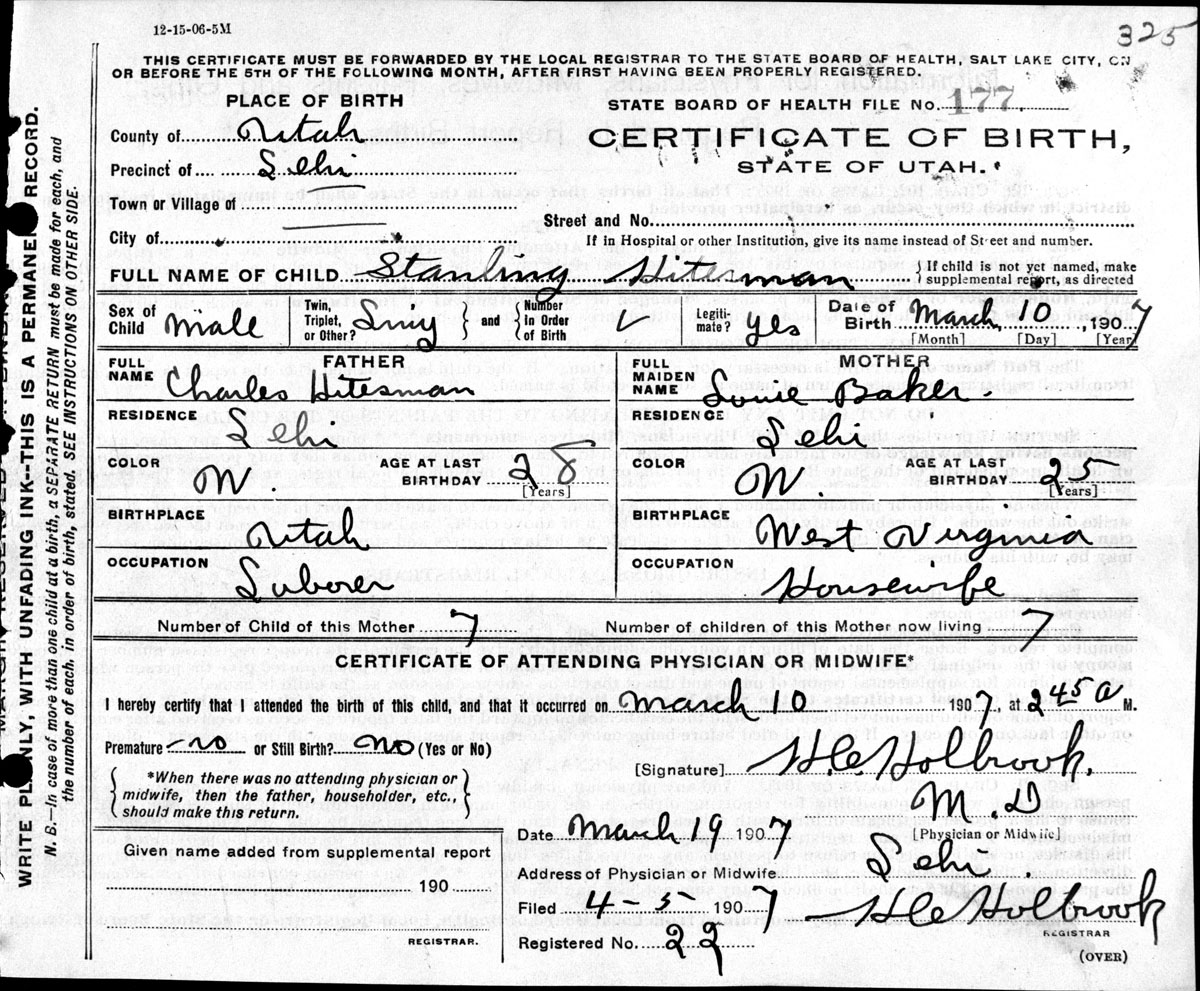 12-15-06-5M
325
THIS CERTIFICATE MUST BE FORWARDED BY THE LOCAL REGISTRAR TO THE STATE BOARD OF HEALTH, SALT LAKE CITY, ON
OR BEFORE THE 5TH OF THE FOLLOWING MONTH, AFTER FIRST HAVING BEEN PROPERLY REGISTERED.
PLACE OF BIRTH
STATE BOARD OF HEALTH FILE No. 177
County of Utah
CERTIFICATE OF BIRTH,
Precinct of Lehi
STATE OF UTAH.
Town or Village of
Street and No.
City of
If in Hospital or other Institution, give its name instead of Street and number.
FULL NAME OF CHILD Stanling Hitesman } If child is not yet named, make supplemental report, as directed
Sex of Child male Twin, Triplet, or Other? and { Number in Order of Birth Legitimate? yes Date of Birth March 10, 1907
[Month] [Day] [Year]
FATHER
FULL NAME Charles Hitesman
RESIDENCE
Lehi
COLOR W. AGE AT LAST BIRTHDAY 28
[Years]
BIRTHPLACE
Utah
OCCUPATION
Laborer
MOTHER
FULL MAIDEN NAME Louie Baker.
RESIDENCE
Lehi
COLOR W. AGE AT LAST BIRTHDAY 25
[Years]
BIRTHPLACE
West Virginia
OCCUPATION
Housewife
Number of Child of this Mother 7
Number of children of this Mother now living 7
CERTIFICATE OF ATTENDING PHYSICIAN OR MIDWIFE*
I hereby certify that I attended the birth of this child, and that it occurred on March 10 1907, at 2 45 a M.
Premature? no or Still Birth? No (Yes or No)
[Signature] H.C. Holbrook.
{ *When there was no attending physician or
midwife, then the father, householder, etc.,
should make this return. }
M. D
[Physician or Midwife]
Date March 19 1907
Given name added from supplemental report
Address of Physician or Midwife Lehi.
190
Filed 4-5- 1907 H C Holbrook
REGISTRAR
REGISTRAR.
Registered No. 22
(OVER)
WRITE PLAINLY WITH UNFADING INK-THIS IS A PERMANENT RECORD.
N. B.-In case of more than one child at a birth, a SEPARATE RETURN must be made for each, and
the number of each, in order of birth, stated. SEE INSTRUCTIONS ON OTHER SIDE.